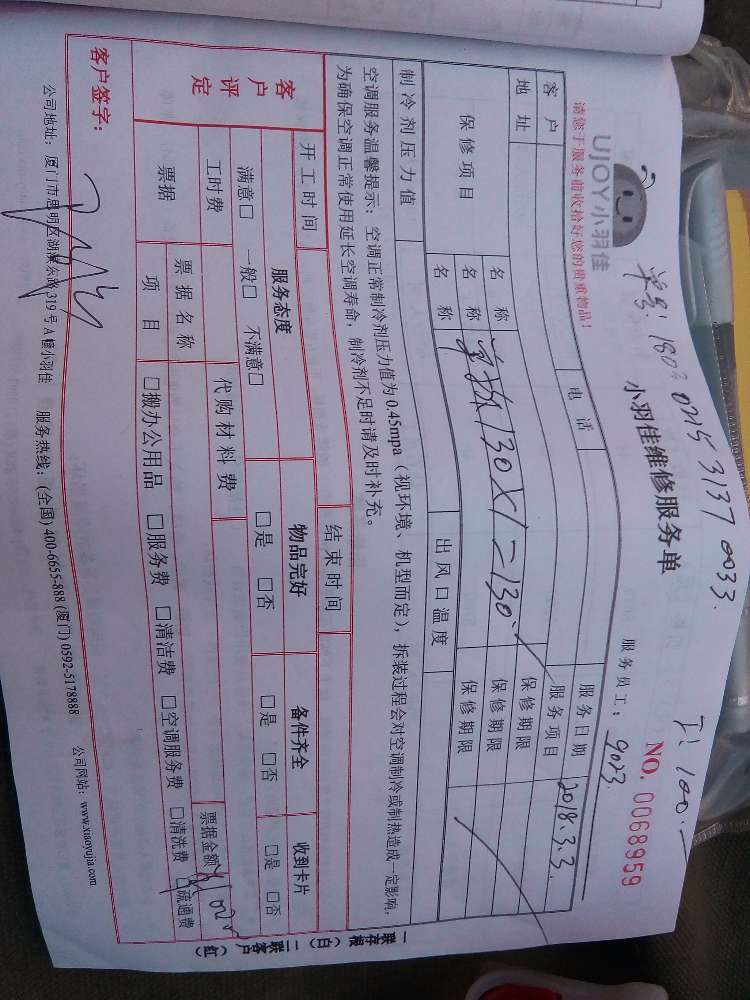 单号: 1803 0225 3137 0033.
UJOY小羽佳
请您于服务前收拾好您的贵重物品!
小羽佳维修服务单
NO. 0068959
服务员工: 9023.
客户
电话
服务日期 2018.3.3.
地址
服务项目
保修项目
名称
保修期限
名称
保修期限
名称
保修期限
130X1=130.
制冷剂压力值
出风口温度
空调服务温馨提示: 空调正常制冷剂压力值为0.45mpa (视环境、机型而定), 拆装过程会对空调制冷或制热造成一定影响,
为确保空调正常使用延长空调寿命, 制冷剂不足时请及时补充。
开工时间
结束时间
客户评定
服务态度
物品完好
备件齐全
收到卡片
满意□ 一般□ 不满意□
□是 □否
□是 □否
□是 □否
工时费
代购材料费
票据
票据名称
票据金额
项目
□搬办公用品 □服务费 □清洁费 □空调服务费 □清洗费 □疏通费
客户签字:
公司地址: 厦门市思明区湖滨东路319号A幢小羽佳 服务热线: (全国) 400-6655-888 (厦门) 0592-5178888 公司网站: www.xiaoyujia.com
一联存根 (白) 二联客户 (红)